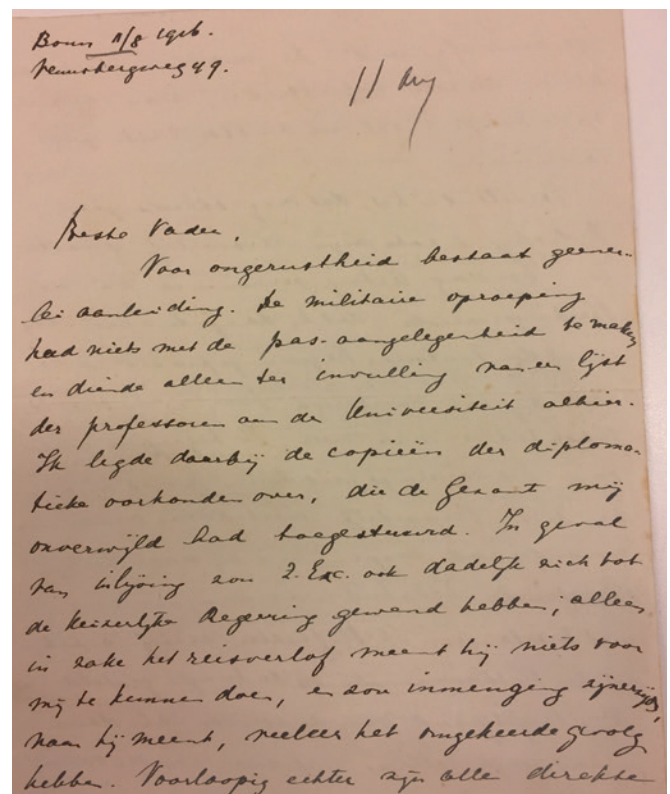 Bonn 1/8 1916.
Venusbergweg 49.
11 Aug
Beste Vader,
Voor ongerustheid bestaat geener-
lei aanleiding. De militaire oproeping
had niets met de pas-aangelegenheid te maken
en diende alleen ter invulling van een lijst
der professoren aan de Universiteit alhier.
Ik legde daarbij de copieën der diploma-
tieke oorkonden over, die de Gezant mij
onverwijld had toegestuurd. In geval
van inlijving zou Z. Exc. ook dadelijk zich tot
de Keizerlijke Regeering gewend hebben; alleen
in zake het reisverlof meent hij niets voor
mij te kunnen doen, en zou inmenging zijnerzijds,
naar hij meent, veeleer het omgekeerde gevolg
hebben. Voorloopig echter zijn alle direkte